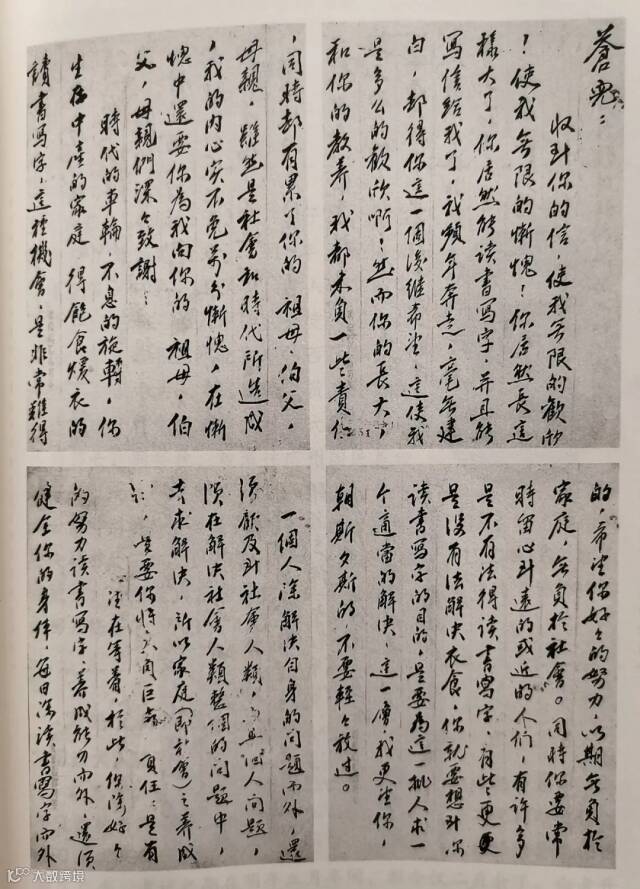 蒼兒：
收到你的信，使我無限的歡欣
！使我無限的慚愧！你居然長這
樣大了，你居然能读書寫字，并且能
寫信給我了，我頻年奔走，毫無建
白，却得你這一個後继希望，這使我
是多么的歡欣啊！然而你的長大，
和你的教养，我都未負一些責任
，同時却有累了你的 祖母，伯父，
母親，雖然是社會和時代所造成
，我的内心实不免萬分慚愧，在慚
愧中還要你為我向你的 祖母，伯
父，母親們深々致謝：
時代的車輪，不息的旋轉，你
生存中產的家庭 得飽食煖衣的
讀書写字，這種機會，是非常難得
的，希望你好々的努力，以期無負於
家庭，無負於社會。同時你要常
時留心到遠的或近的人们，有許多
是不有法得读書寫字，有些更更
是沒有法解决衣食，你就要想到你
读書写字的目的，是要為這一批人求一
个適當的解决，這一層，我更望你，
朝斯夕斯的，不要輕々放过。
一個人除解决自身的问題而外，還
須顧及到社會人類，而且個人问題，
須在解决社會人類整個的问題中，
去求解决，所以家庭（即社會）之养成
，是要你將 巨 責任：是有
在等着，於此，你除好々
的努力读書写字，养成能力而外，還須
健全你的身体，每日除读書写字而外
大数跨境